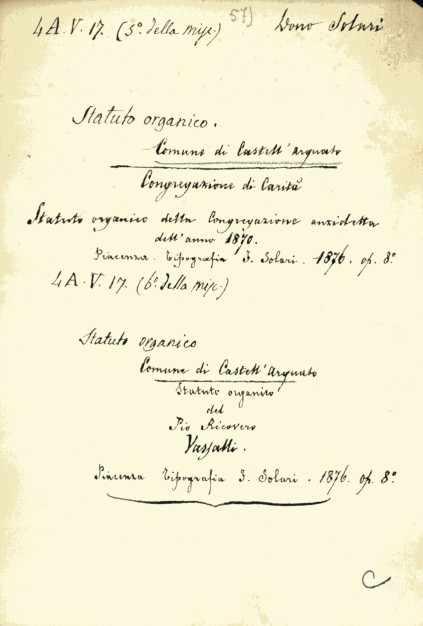 57)
4 A. V. 17. (5º della misc.) Dono Solari
Statuto organico.
Comune di Castell'Arquato
Congregazione di Carità
Statuto organico della Congregazione anzidetta
dell'anno 1870.
Piacenza. Tipografia F. Solari. 1876. op. 8º
4 A. V. 17. (6º della misc.)
Statuto organico
Comune di Castell'Arquato
Statuto organico
del
Pio Ricovero
Vassalli.
Piacenza Tipografia F. Solari. 1876. op. 8º
C